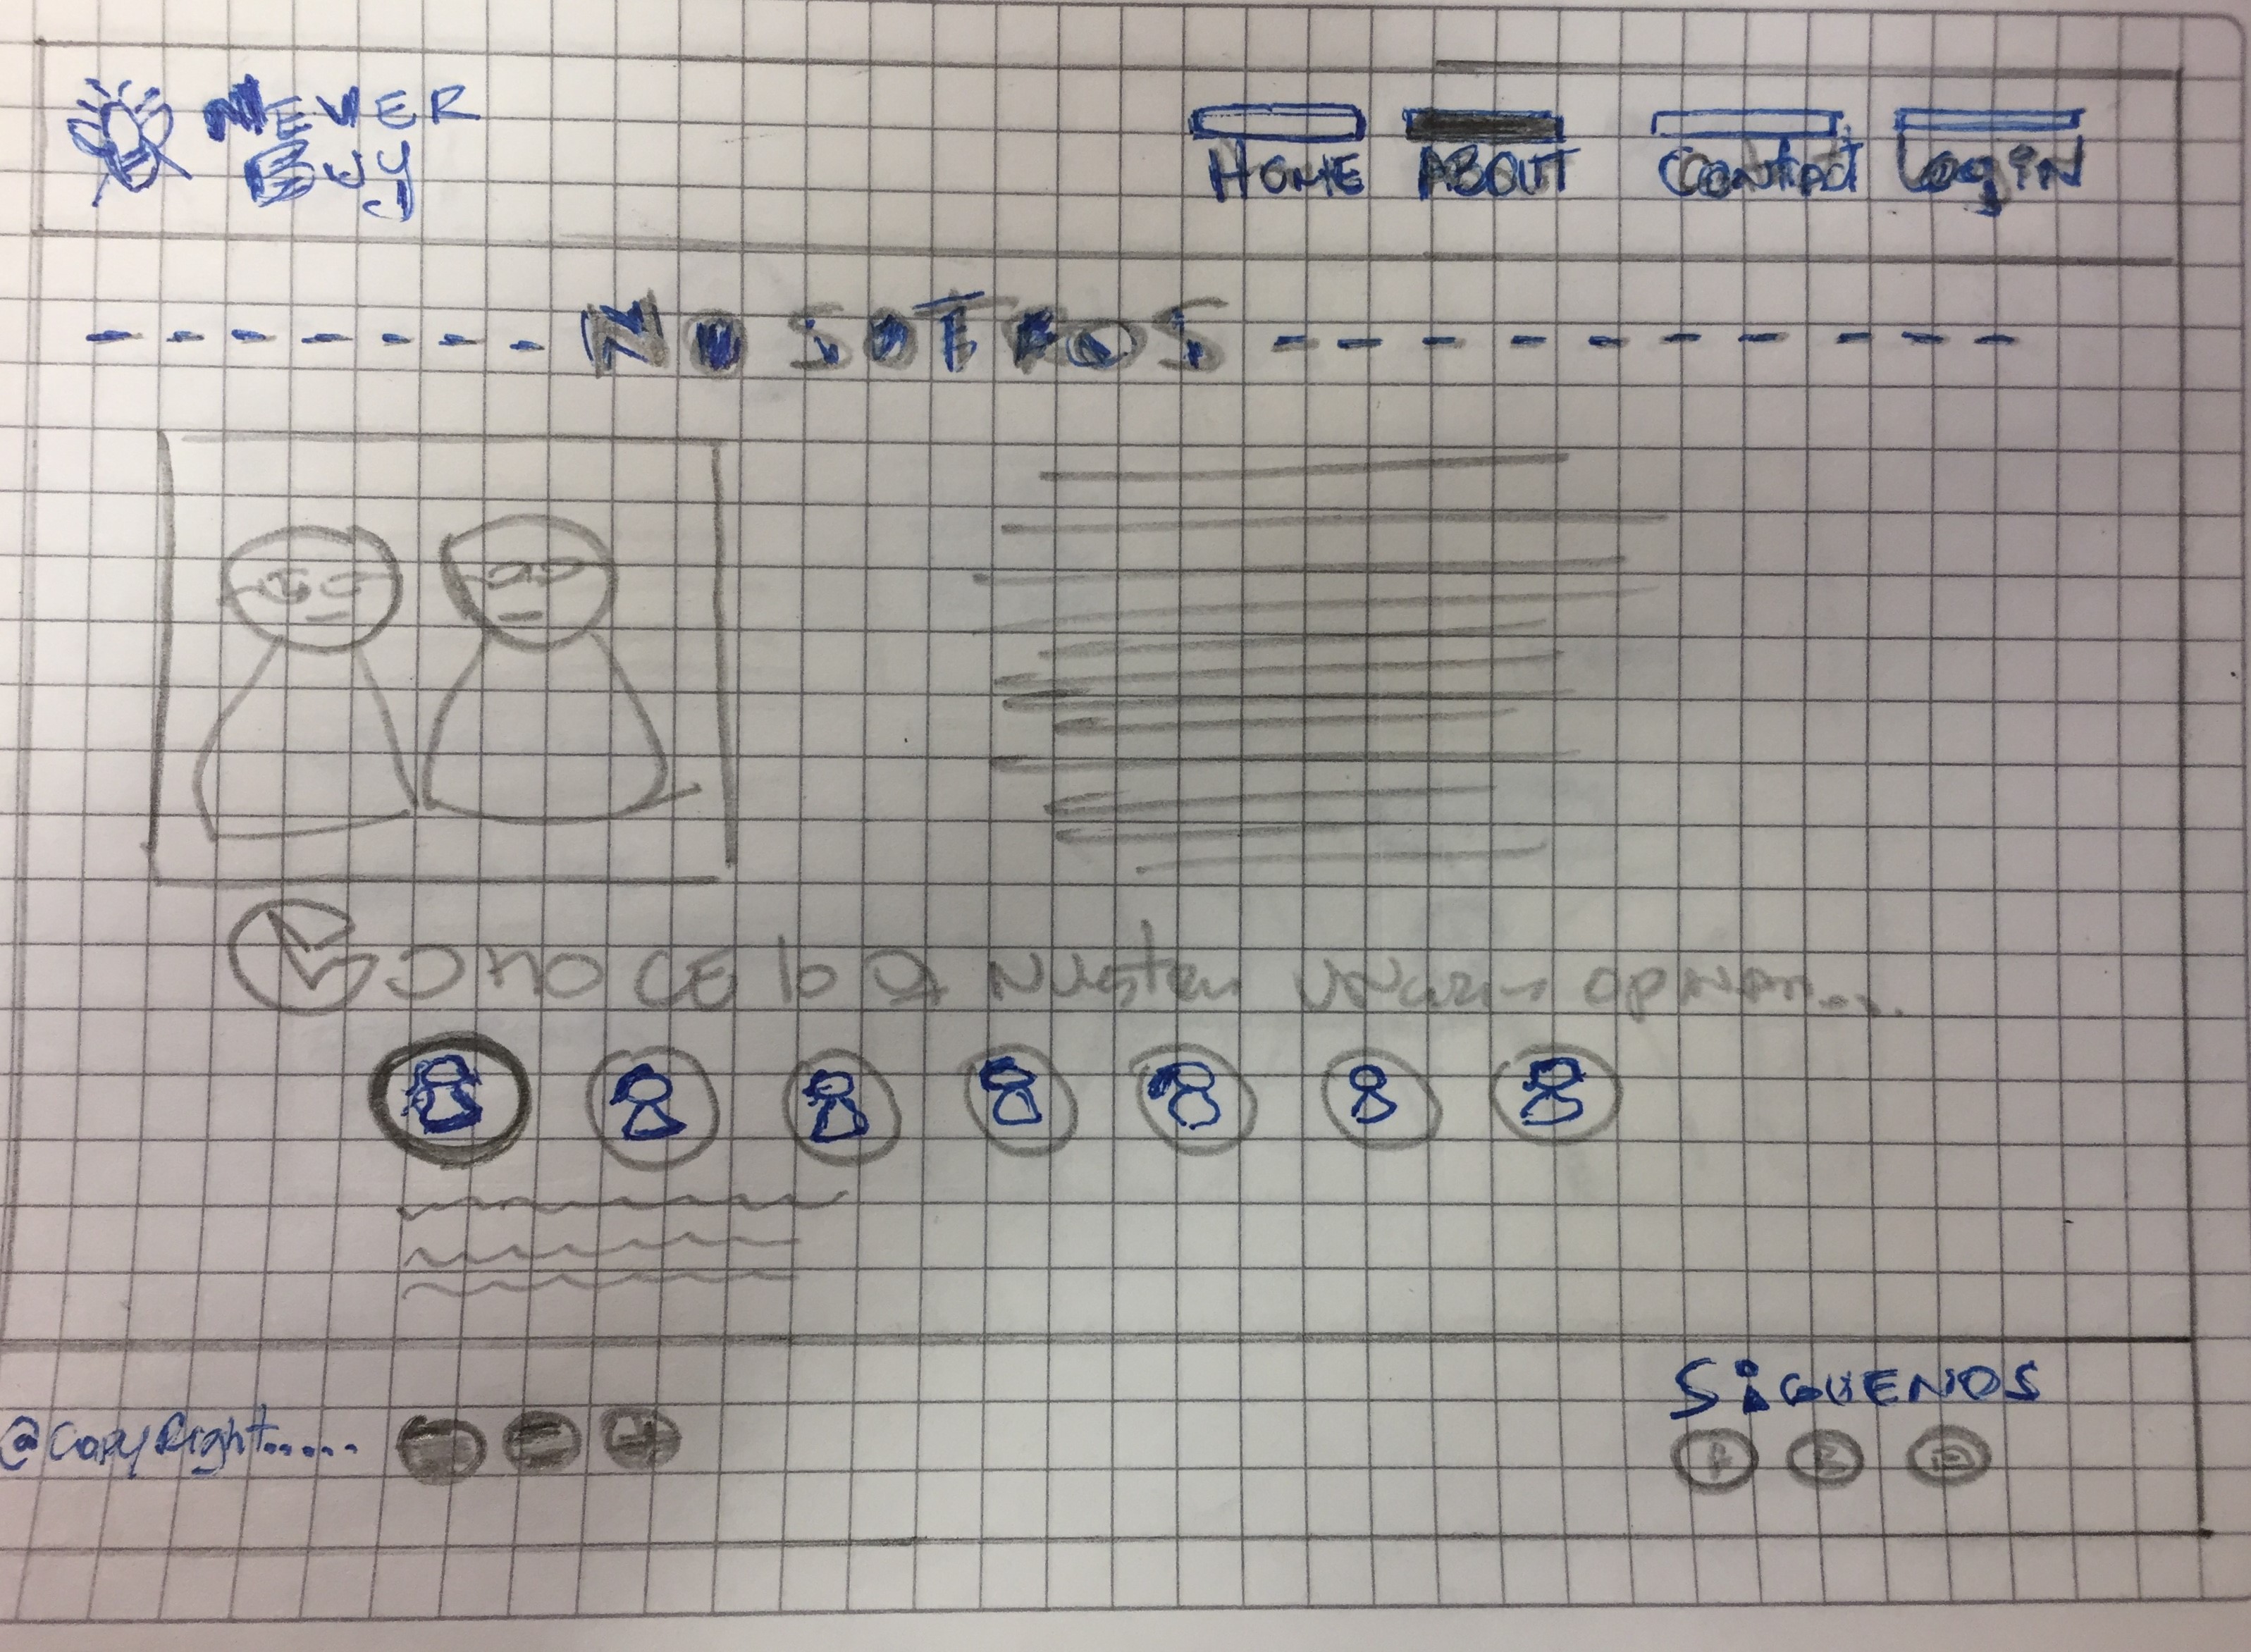 NEVER
BUY
HOME ABOUT Contact Login
- - - - - - - NOSOTROS - - - - - - - - - -
CONOCE lo Q Nuestros usuarios opinan....
SiGUENOS
@CopyRight.....